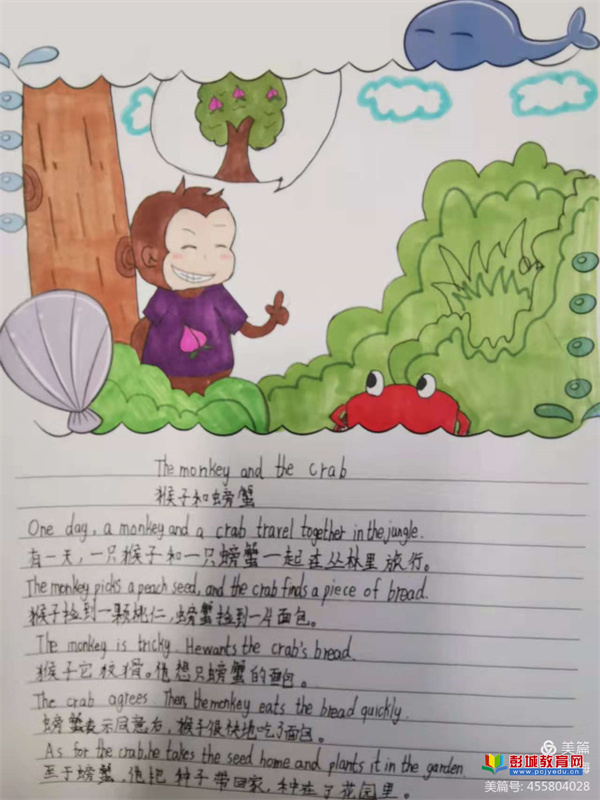 The monkey and the crab
猴子和螃蟹
One day, a monkey and a crab travel together in the jungle.
有一天,一只猴子和一只螃蟹一起在丛林里旅行。
The monkey picks a peach seed, and the crab finds a piece of bread.
猴子捡到一颗桃仁,螃蟹捡到一片面包。
The monkey is tricky. He wants the crab's bread.
猴子它狡猾。他想只螃蟹的面包。
The crab agrees. Then, the monkey eats the bread quickly.
螃蟹表示同意后,猴子很快地吃了面包。
As for the crab, he takes the seed home and plants it in the garden
至于螃蟹,他把种子带回家,种在了花园里。
美篇
彭城教育网
www.pcjyedu.cn
美篇号: 455804028